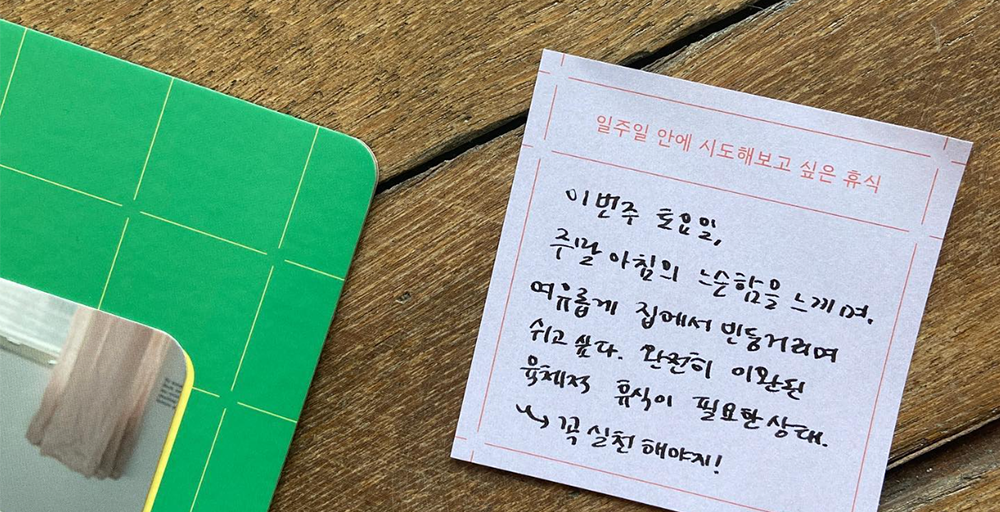 일주일 안에 시도해보고 싶은 휴식
이번주 토요일,
주말 아침의 느슨함을 느끼며.
여유롭게 집에서 빈둥거리며
쉬고싶다. 완전히 이완된
육체적 휴식이 필요한상태.
꼭 실천해야지!